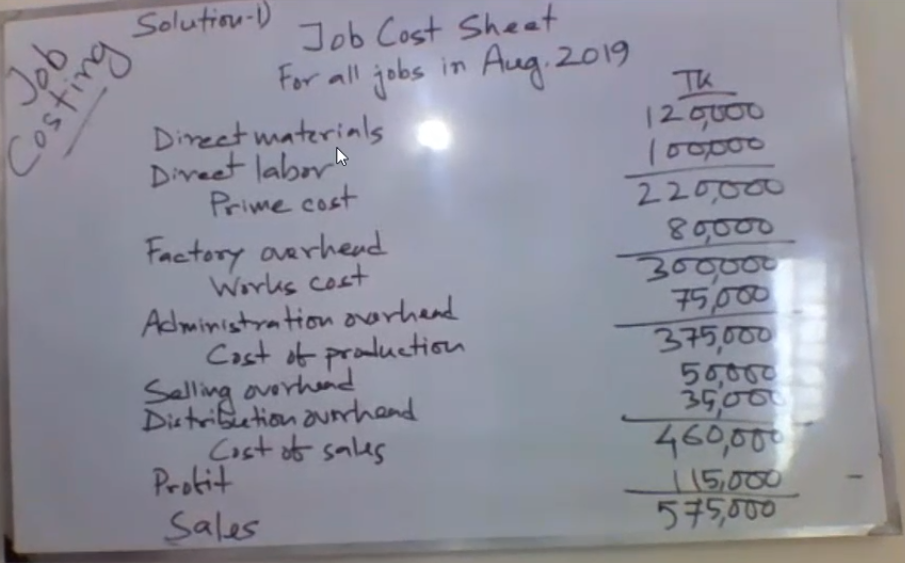 Job
Costing
Solution-1)
Job Cost Sheet
For all jobs in Aug. 2019
Tk
Direct materials 120,000
Direct labor 100,000
Prime cost 220,000
Factory overhead 80,000
Works cost 300,000
Administration overhead 75,000
Cost of production 375,000
Selling overhead 50,000
Distribution overhead 35,000
Cost of sales 460,000
Profit 115,000
Sales 575,000